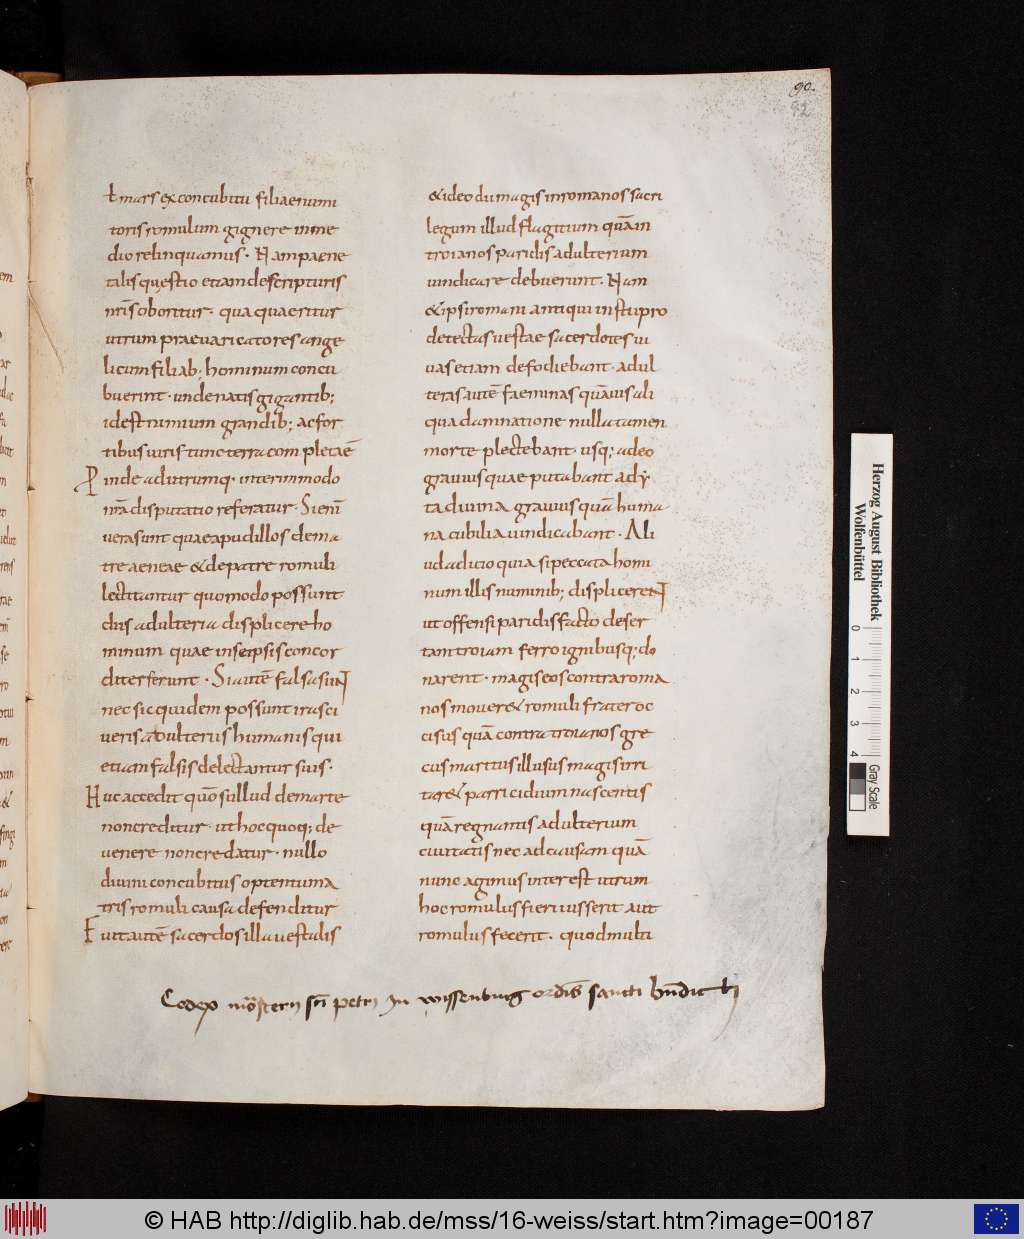 90.
92
et mars ex concubitu filiae numi
toris romulum gignere inme
dio relinquamus. Nampaene
talisquęstio etiamdescripturis
nr̅isoboritur. quaquaeritur
utrum praeuaricatoresange
licumfiliab; hominumconcu
buerint. undenatisgigantib;
idestnimium grandib; acfor
tibusuiristuncterracompletaē
Proinde adutrumq. interimmodo
nr̅adisputatio referatur. Sieni̅
uerasunt quaeapudillos dema
tre aeneae & depatre romuli
lectitantur quomodo possunt
diis adulteria displicere ho
minum quae inseipsis concor
diter ferunt. Siautē falsasunt
nec sic quidem possunt irasci
ueris adulteriis humanis qui
etiam falsis delectantur suis.
Huc accedit quōsi illud demarte
noncreditur. uthocquoq; de
uenere noncredatur. nullo
diuini concubitus optentuma
tris romuli causa defenditur
Fuit autē sacerdos illa uestalis
& ideo dii magis inromanos sacri
legum illud flagitium quā in
troianos paridis adulterium
uindicare debuerunt. Nam
& ipsi romani antiqui instupro
detectas uestae sacerdotes ui
uas etiam defodiebant. adul
teras autē faeminas quāuis ali
qua damnatione nulla tamen
morte plectebant. usq; adeo
grauius quae putabant ady
ta diuina grauius quā huma
na cubilia uindicabant. Ali
ud adicio quia si peccata homi
num illis numinib; displicerent
ut offensi paridis facto deser
tam troiam ferro ignibusq; do
narent. magis eos contra roma
nos mouer& romuli frater oc
cisus quā contra troianos gre
cus maritus illusus magis irri
tar& parricidium nascentis
quā regnantis adulterium
ciuitatis nec ad causam quā
nunc agimus interest utrum
hoc romulus fieri iusserit aut
romulus fecerit. quod multi
Codex monastery sc̅i petri In wissenburg ordi̅s sancti bn̅dicti
Herzog August Bibliothek
Wolfenbüttel
0 1 2 3 4
Gray Scale
© HAB http://diglib.hab.de/mss/16-weiss/start.htm?image=00187